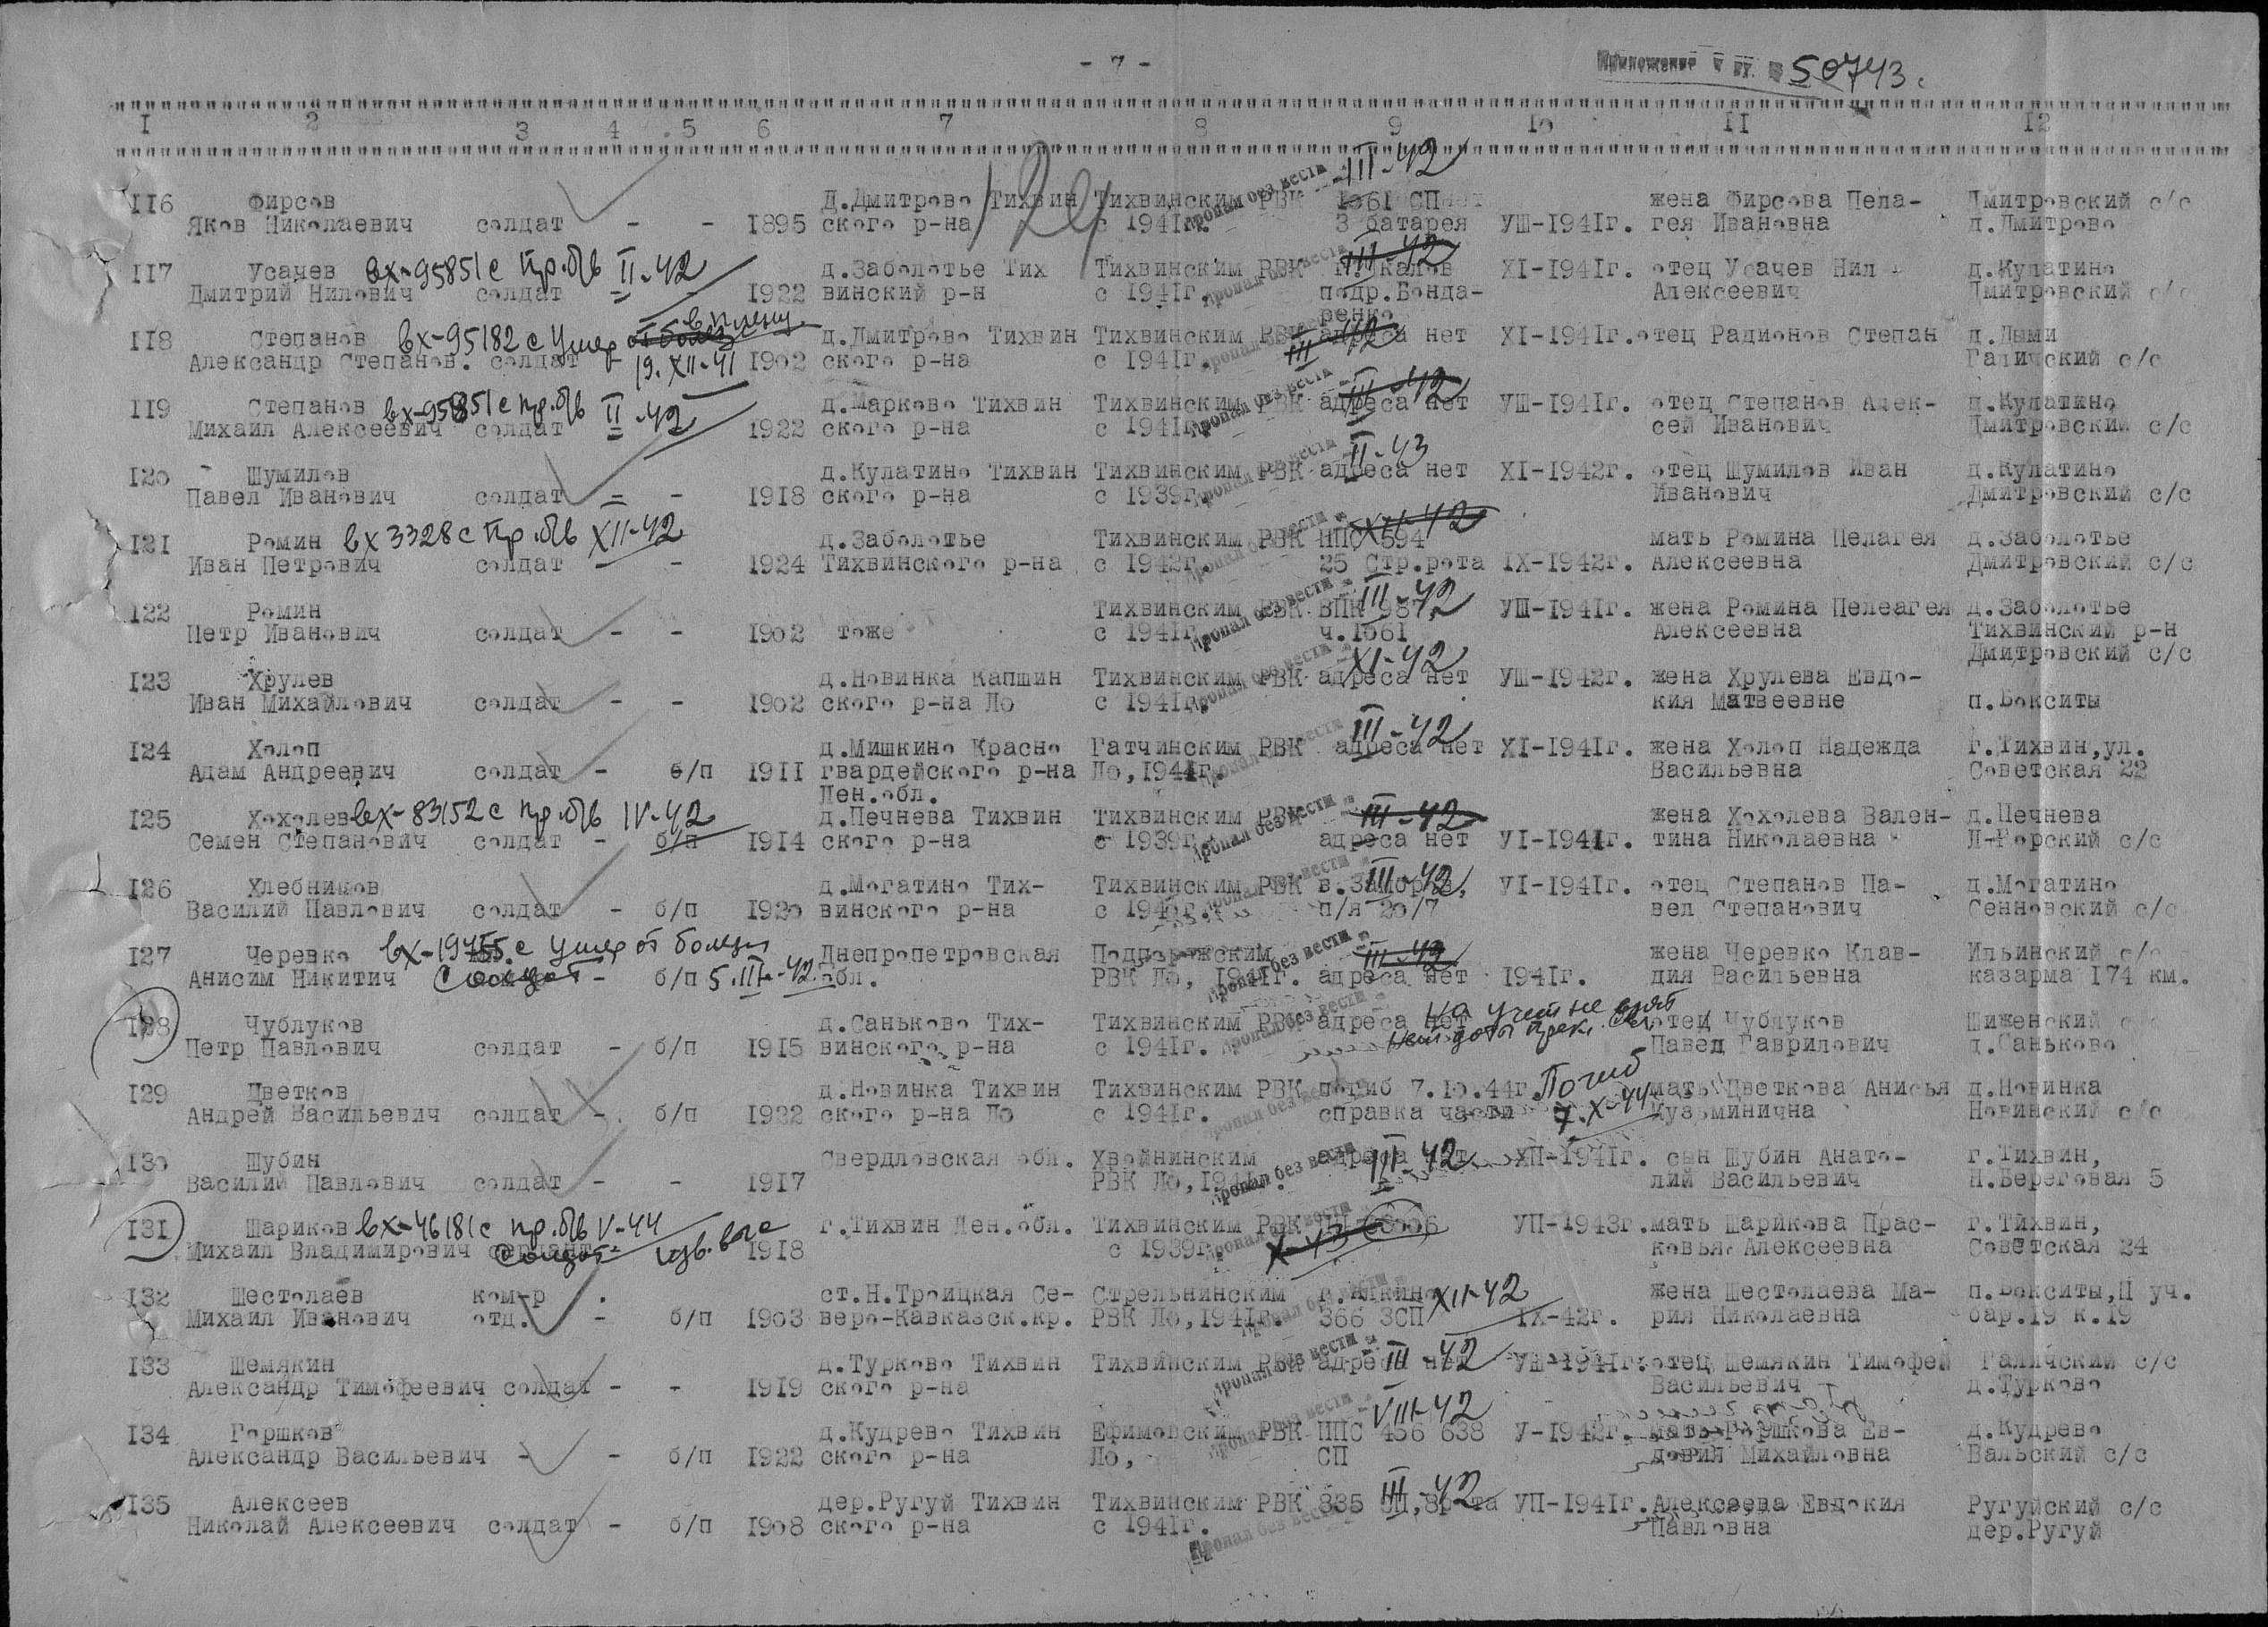 - 7 -
50743с
I 2 3 4 5 6 7 8 9 10 II 12
124
III-42
II6 Фирсов д.Дмитрово Тихвин Тихвинским РВК 1061 СП жена Фирсова Пела- Дмитровский с/с
Яков Николаевич солдат - - 1895 ского р-на с 1941г. 3 батарея УШ-1941г. гея Ивановна д.Дмитрово
Пропал без вести
II7 Усачев вх-95851с пр.б/в II-42 д.Заболотье Тих Тихвинским РВК III-42 XI-1941г. отец Усачев Нил д.Кулатино
Дмитрий Нилович солдат = - 1922 винский р-н с 1941г. подр.Бонда- Алексеевич Дмитровский с/с
ренко
II8 Степанов вх-95182с умер от болез в плену д.Дмитрово Тихвин Тихвинским РВК адреса нет XI-1941г. отец Радионов Степан д.Дыми
Александр Степанов. солдат - 19.XII-41 1902 ского р-на с 1941г. III-42 Галичский с/с
II9 Степанов вх-95851с пр.б/в II-42 д.Марково Тихвин Тихвинским РВК адреса нет III-42 УШ-1941г. отец Степанов Алек- д.Кулатино
Михаил Алексеевич солдат 1922 ского р-на с 1941г. Пропал без вести сей Иванович Дмитровский с/с
II-43
I20 Шумилов д.Кулатино Тихвин Тихвинским РВК адреса нет XI-1942г. отец Шумилов Иван д.Кулатино
Павел Иванович солдат = - 1918 ского р-на с 1939г. Иванович Дмитровский с/с
XII-42
I21 Ромин вх 3328с пр.б/в XII-42 д.Заболотье Тихвинским РВК ППС 594 мать Ромина Пелагея д.Заболотье
Иван Петрович солдат - 1924 Тихвинского р-на с 1942г. 25 Стр.рота IX-1942г. Алексеевна Дмитровский с/с
I22 Ромин Тихвинским РВК ВПК 987, III-42 УШ-1941г. жена Ромина Пелеагея д.Заболотье
Петр Иванович солдат - - 1902 тоже с 1941г. Пропал без вести ч.1061 Алексеевна Тихвинский р-н
Дмитровский с/с
I23 Хрулев д.Новинка Капшин Тихвинским РВК адреса нет XI-42 УШ-1942г. жена Хрулева Евдо-
Иван Михайлович солдат - - 1902 ского р-на Ло с 1941г. Пропал без вести кия Матвеевне п.Бокситы
III-42
I24 Холоп д.Мишкино Красно Гатчинским РВК адреса нет XI-1941г. жена Холоп Надежда г.Тихвин,ул.
Адам Андреевич солдат - б/п 1911 гвардейского р-на Ло,1941г. Васильевна Советская 22
Лен.обл.
I25 Хохолев вх-83152с пр.б/в IV-42 д.Печнева Тихвин Тихвинским РВК III-42 жена Хохолева Вален- д.Печнева
Семен Степанович солдат - б/п 1914 ского р-на с 1939г. Пропал без вести адреса нет УI-1941г. тина Николаевна Л-Горский с/с
I26 Хлебников д.Могатино Тих- Тихвинским РВК III-42 УI-1941г. отец Степанов Па- д.Могатино
Василий Павлович солдат - б/п 1920 винского р-на с 1940г. п/я 20/7 вел Степанович Сенновский с/с
I27 Черевко вх-19455с умер от болезн Днепропетровская Подпорожским III-42 жена Черевко Клав- Ильинский с/с
Анисим Никитич солдат - б/п 5.III-42 обл. РВК Ло, 1941г. Пропал без вести адреса нет 1941г. дия Васильевна казарма 174 км.
I28 Чублуков д.Саньково Тих- Тихвинским РВК адреса нет на учет не взят отец Чублуков Шиженский
Петр Павлович солдат - б/п 1915 винского р-на с 1941г. Пропал без вести нет даты прек. св. Павел Гаврилович д.Саньково
I29 Цветков д.Новинка Тихвин Тихвинским РВК погиб 7.10.44г. Погиб мать Цветкова Анисья д.Новинка
Андрей Васильевич солдат -. б/п 1922 ского р-на Ло с 1941г. справка части 7.X-44 Кузьминична Новинский с/с
I30 Шубин Свердловская обл. Хвойнинским адреса нет III-42 ХП-1941г. сын Шубин Анато- г.Тихвин,
Василий Павлович солдат - - 1917 РВК Ло,1941г. Пропал без вести лий Васильевич Н.Береговая 5
I31 Шариков вх-46181с пр.б/в V-44 г.Тихвин Лен.обл. Тихвинским РВК УП-1943г. мать Шарикова Прас- г.Тихвин,
Михаил Владимирович сержант солдат 1918 с 1939г. X-43 ковья Алексеевна Советская 24
I32 Шестолаев ком-р ст.Н.Троицкая Се- Стрельнинским XII-42 жена Шестолаева Ма- п.Бокситы,II уч.
Михаил Иванович отд. - б/п 1903 веро-Кавказск.кр. РВК Ло,1941г. 366 ЗСП IX-42г. рия Николаевна бар.19 к.19
I33 Шемякин д.Турково Тихвин Тихвинским РВК адреса нет III-42 УШ-1941г. отец Шемякин Тимофей Галичский с/с
Александр Тимофеевич солдат - - 1919 ского р-на Пропал без вести Васильевич д.Турково
VIII-42
I34 Горшков д.Кудрево Тихвин Ефимовским РВК ППС 456 638 У-1942г. мать Горшкова Ев- д.Кудрево
Александр Васильевич - - б/п 1922 ского р-на Ло, СП докия Михайловна Вальский с/с
III-42
I35 Алексеев дер.Ругуй Тихвин Тихвинским РВК 835 СП,8рота УП-1941г. Алексеева Евдокия Ругуйский с/с
Николай Алексеевич солдат - б/п 1908 ского р-на с 1941г. Пропал без вести Павловна дер.Ругуй